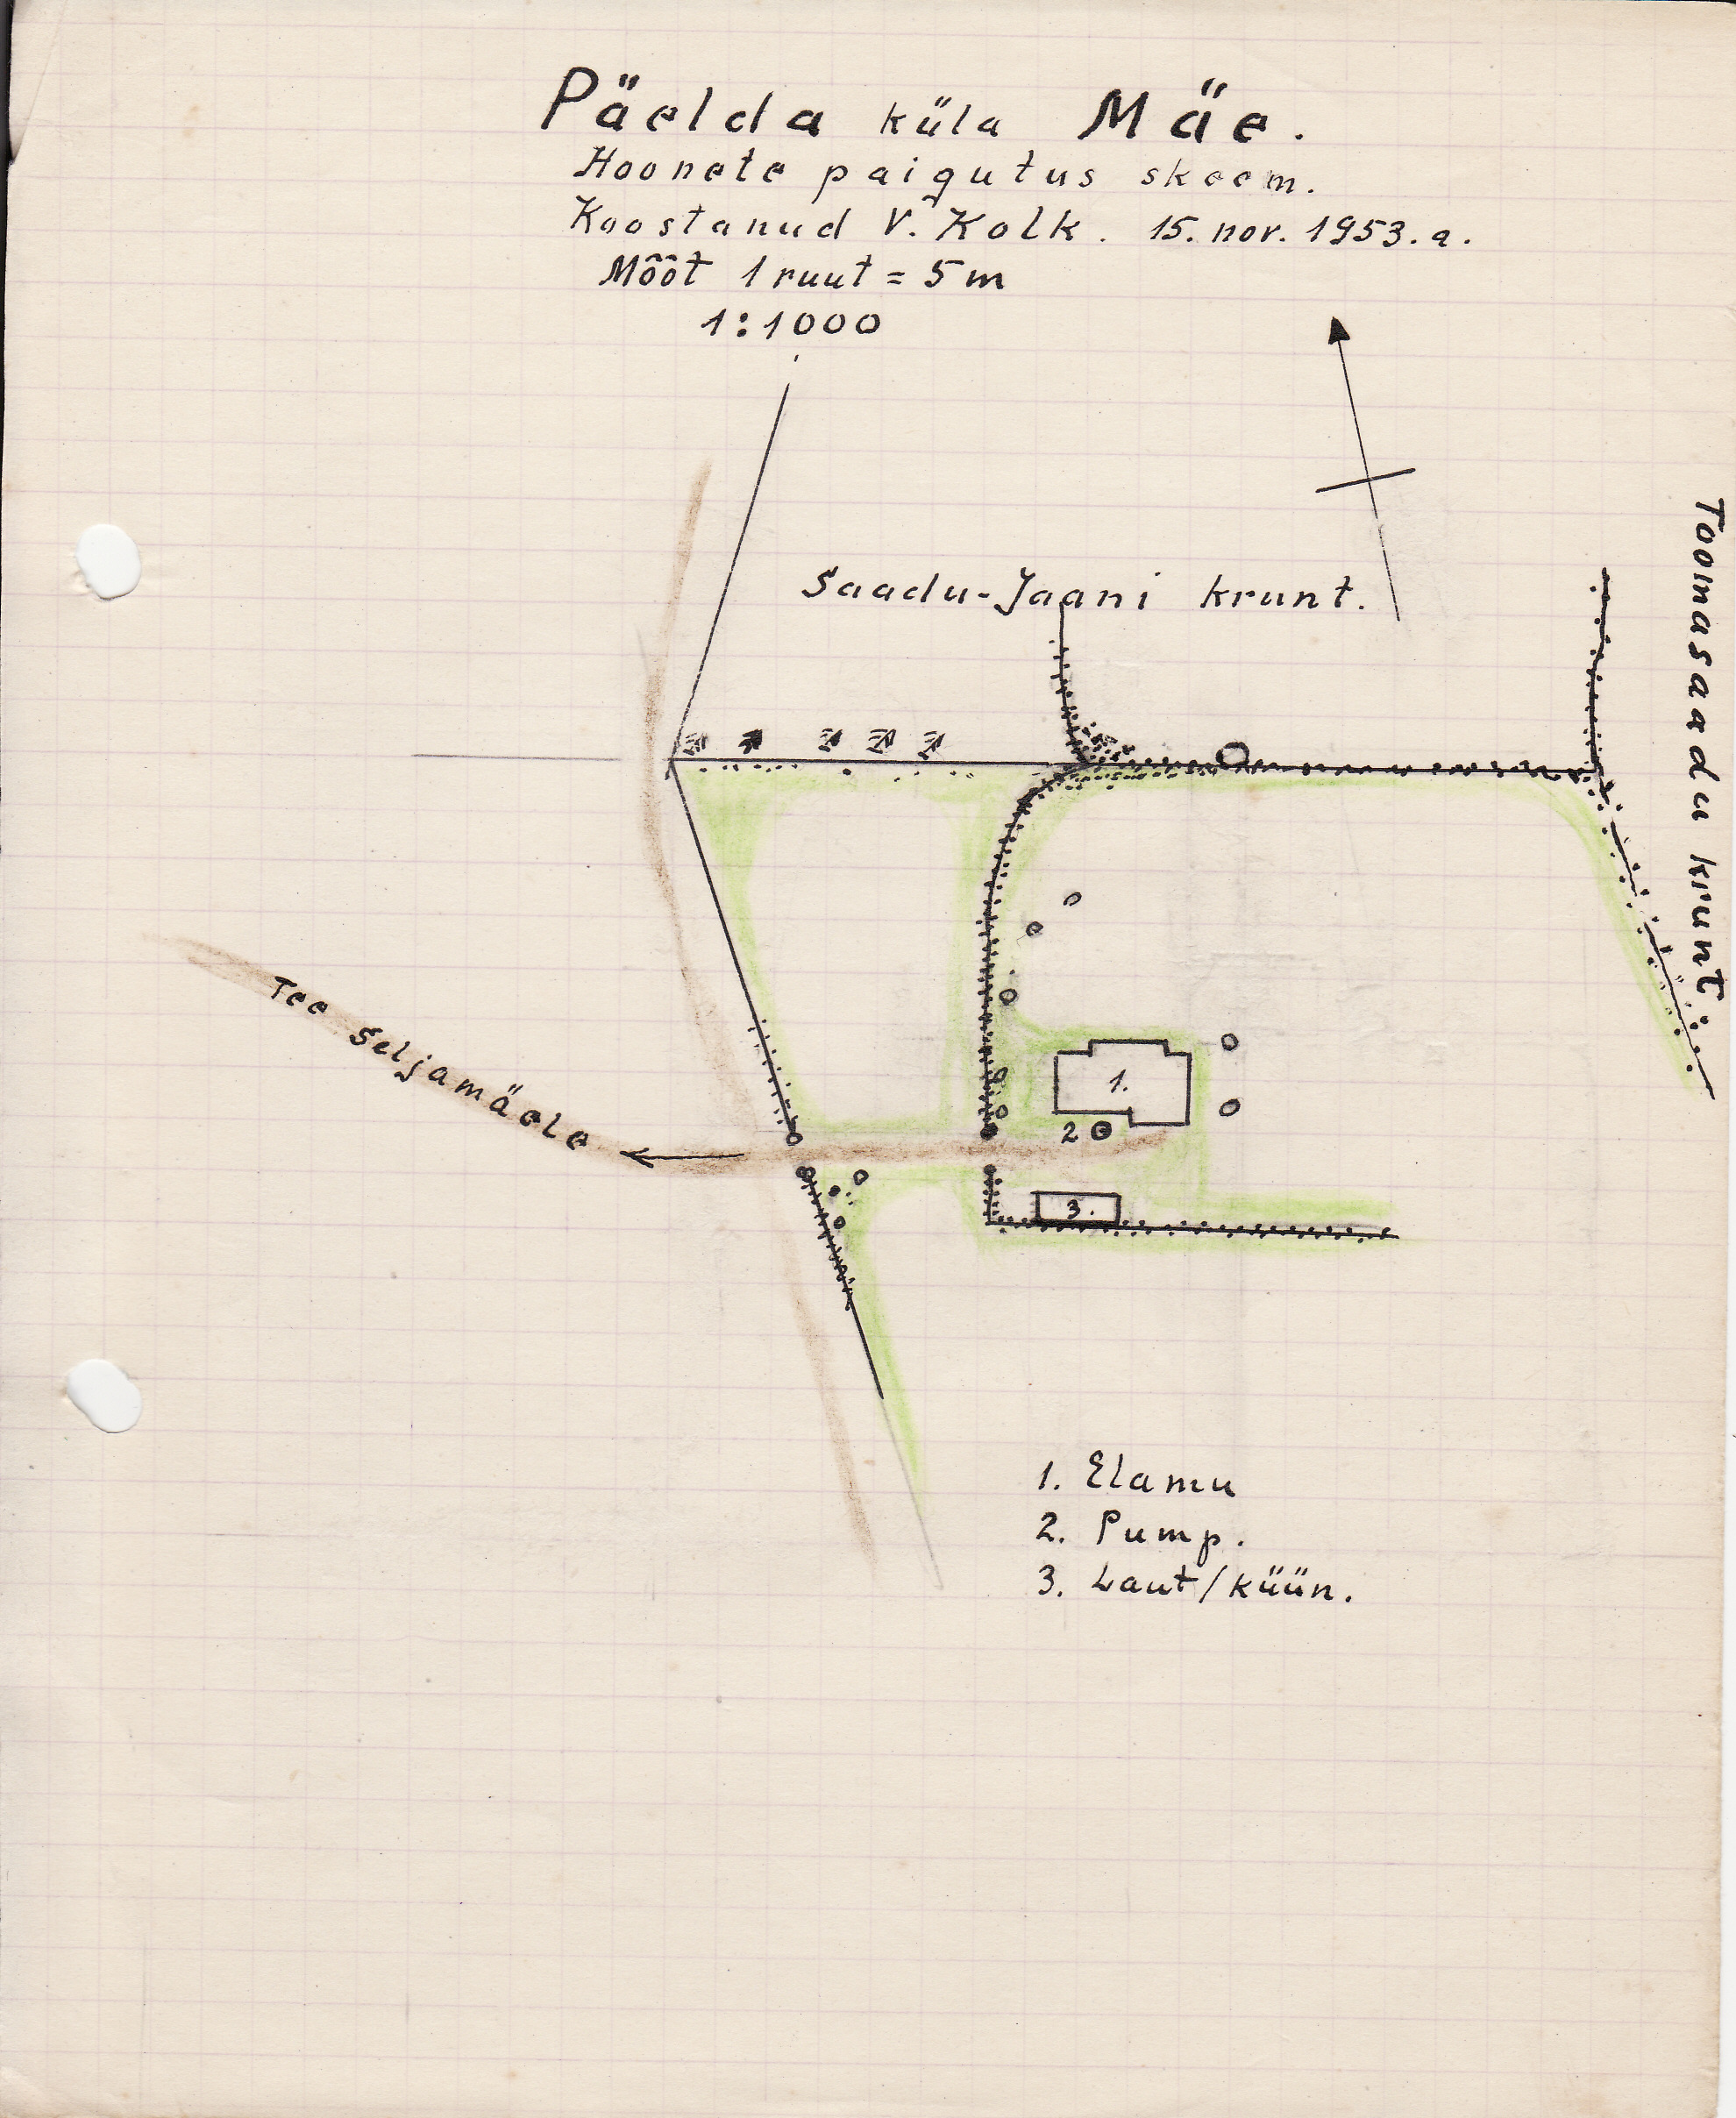 Päelda küla Mäe.
Hoonete paigutus skeem.
Koostanud V. Kolk. 15. nov. 1953. a.
Mõõt 1 ruut = 5 m
1:1000
Saadu-Jaani krunt.
Toomasaadu krunt.
Tee Seljamäele
1.
2
3.
1. Elamu
2. Pump.
3. Laut/küün.